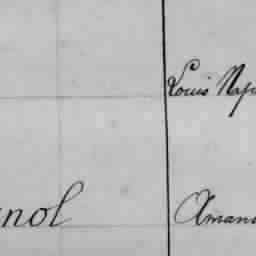 Louis Nap
nol Amand